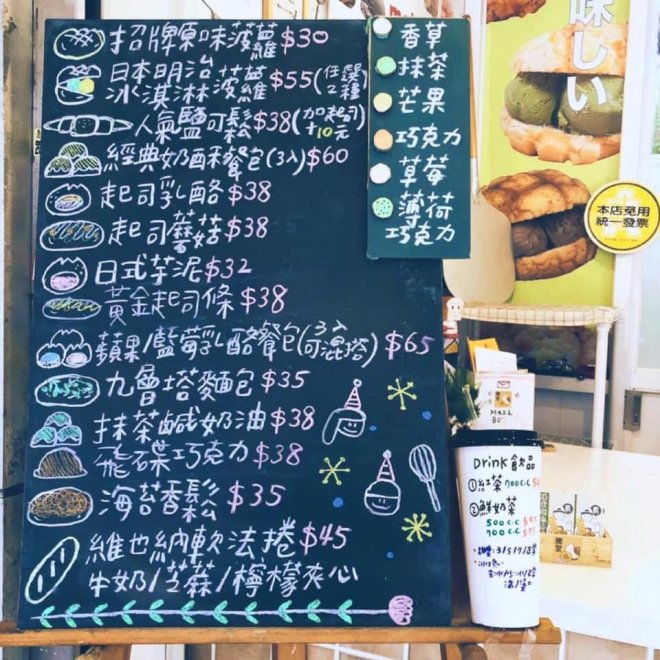 招牌原味菠蘿$30
日本明治
冰淇淋菠蘿$55(任選2種)
人氣鹽可鬆$38(加起司+10元)
經典奶酥餐包(3入)$60
起司乳酪$38
起司蘑菇$38
日式芋泥$32
黃金起司條$38
蘋果/藍莓乳酪餐包(3入可混搭)$65
九層塔麵包$35
抹茶鹹奶油$38
飛碟巧克力$38
海苔香鬆$35
維也納軟法捲$45
牛奶/芝蔴/檸檬夾心
香草
抹茶
芒果
巧克力
草莓
薄荷
巧克力
味しい
本店免用
統一發票
MAIL
BOX
Drink 飲品
①紅茶700c.c
②鮮奶茶
500c.c
700c.c